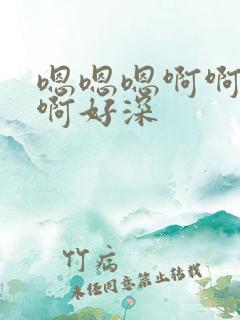 嗯嗯嗯啊啊
啊好深
竹病
未经同意禁止转载